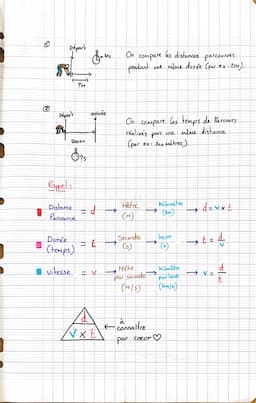 ①
Départ
20s
On compare les distances parcourues
pendant une même durée (par ex : 20s).
?m
②
Départ
arrivée
On compare les temps de parcours
réalisés pour une même distance
(par ex: 200 mètres).
200m
?s
Rappel :
Distance = d → Mètre → Kilomètre → d = v x t
Parcourue (m) (km)
Durée = t → Seconde → heure → t = d/v
(temps) (s) (h)
vitesse = v → Mètre → Kilomètre → v = d/t
par seconde par heure
(m/s) (km/h)
d
v x t
← à
connaître
par coeur ♡